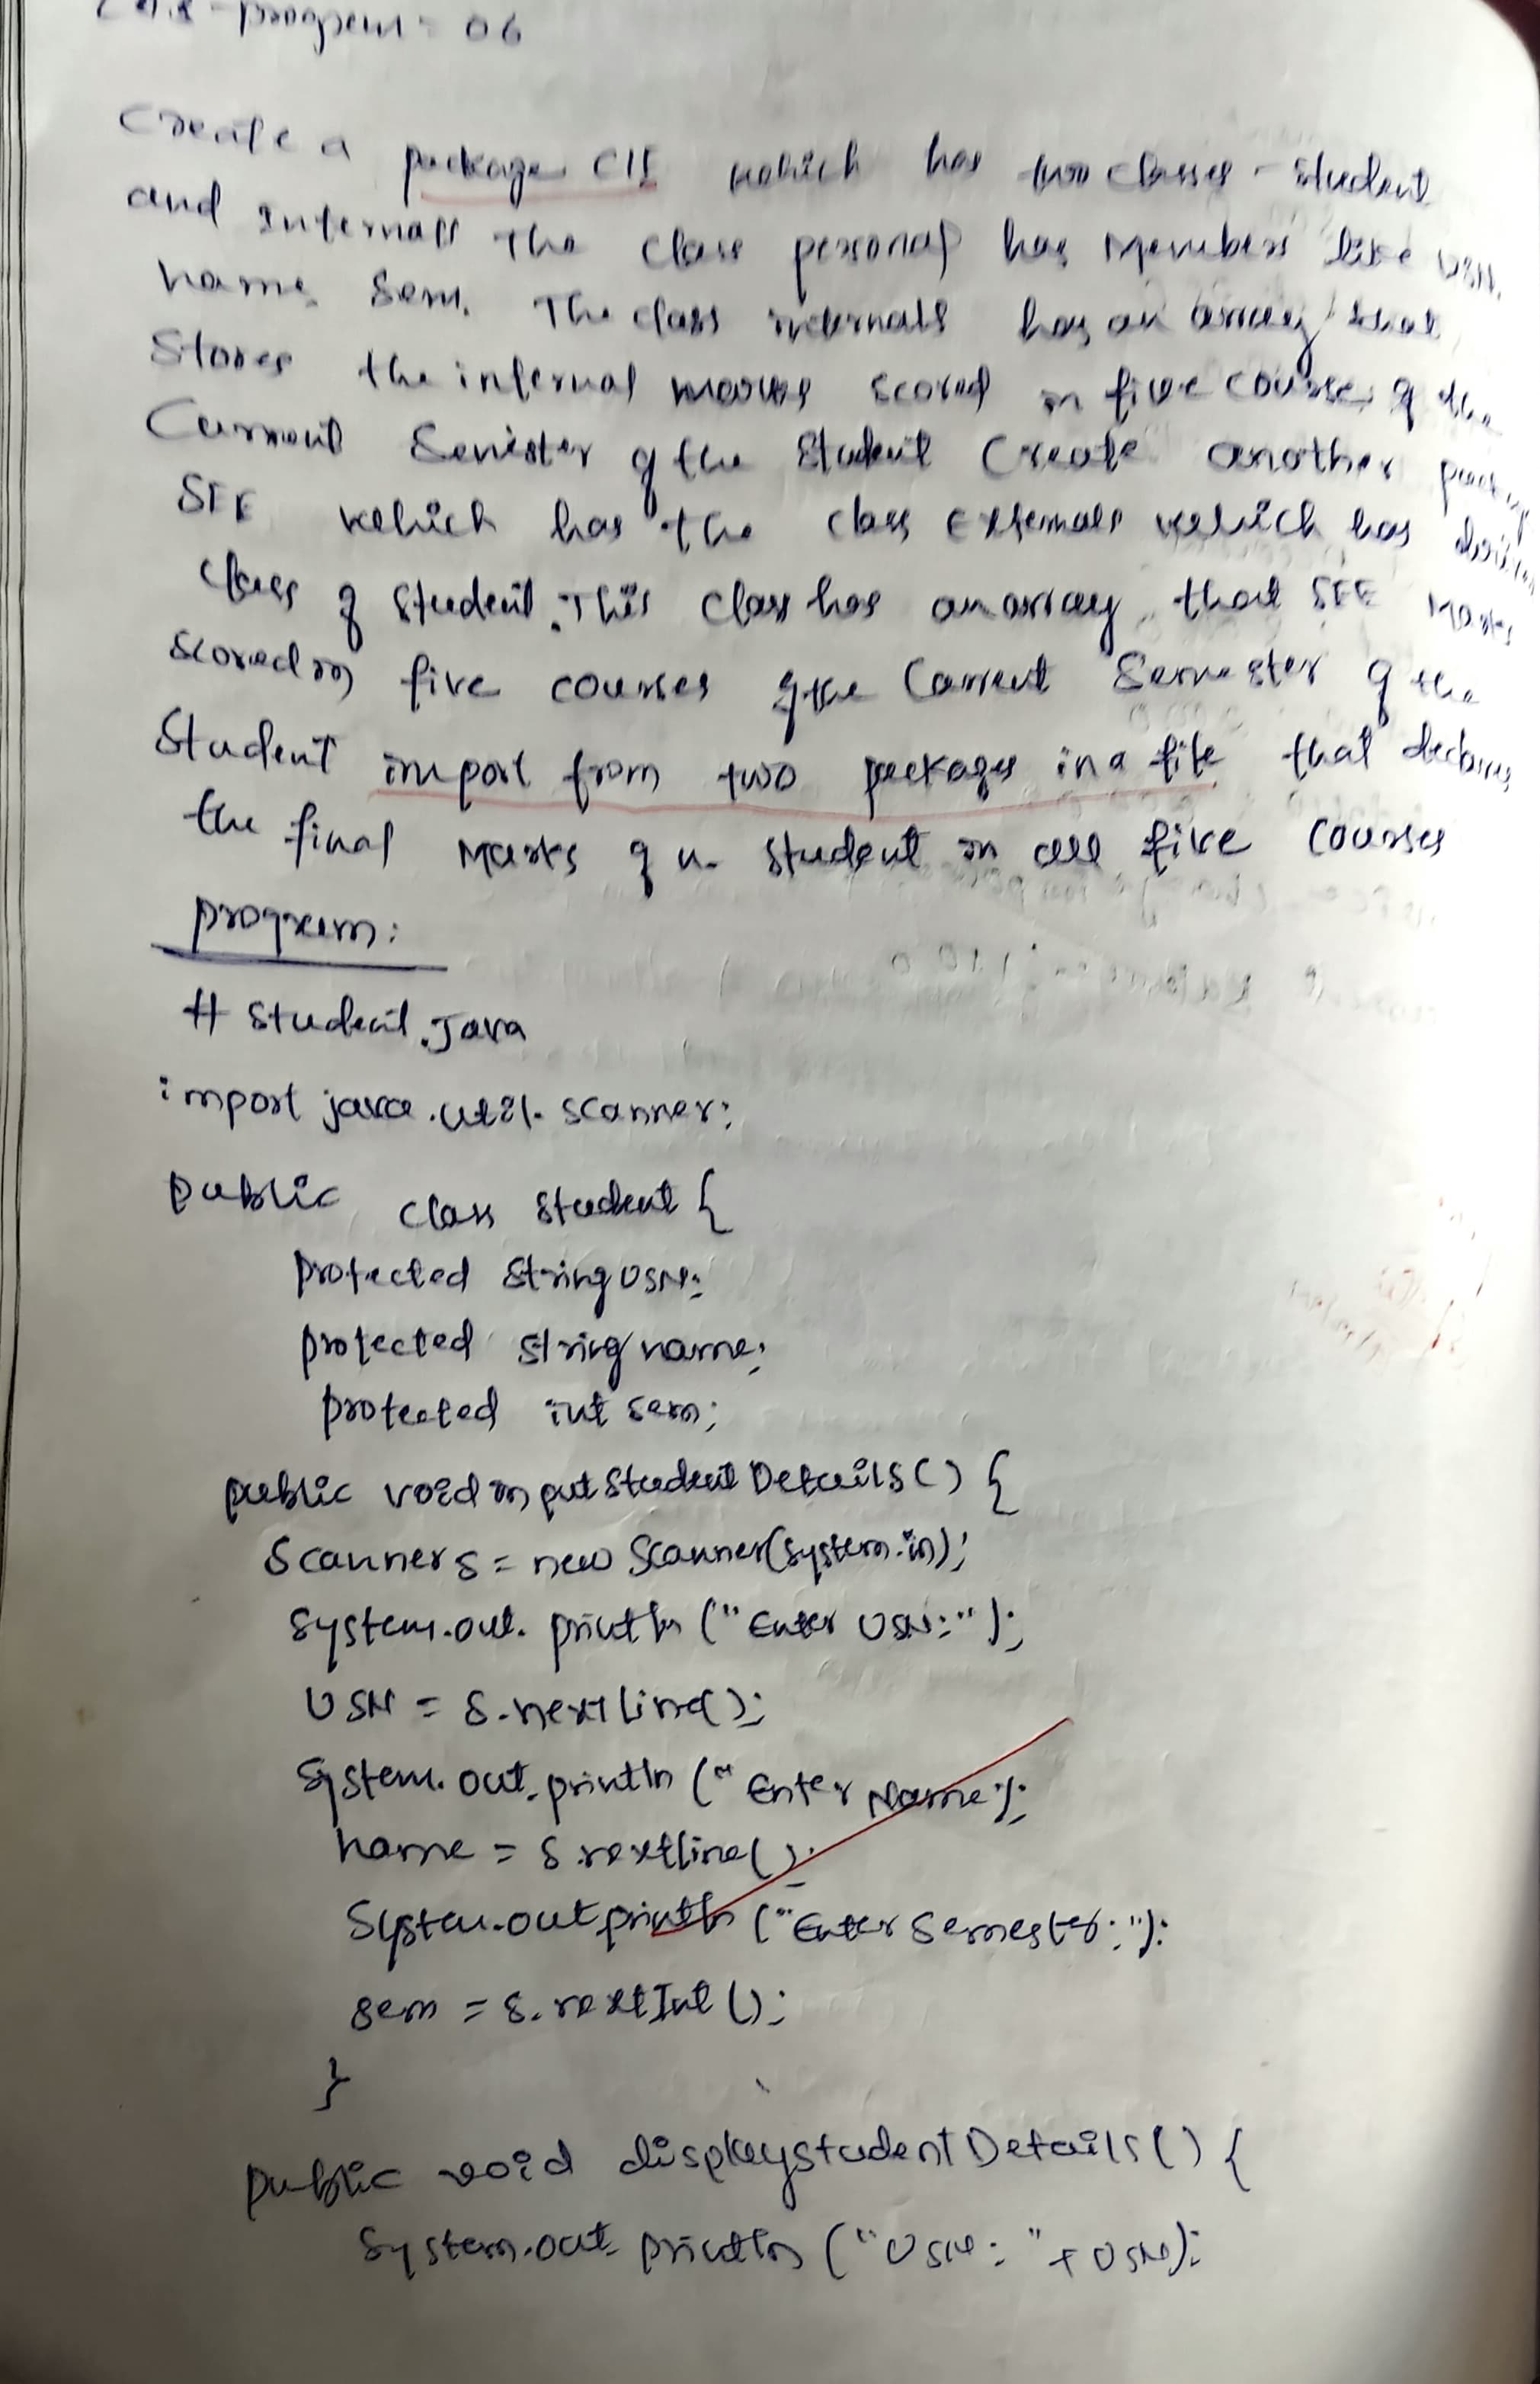 program - 06
Create a package CIE which has two classes - Student
and Internals The class personal has Members like USN.
name, Sem. The class internals has an array that
Stores the internal marks scored in five courses of the
Current Semister of the Student Create another
SEE which has the class Externals which has
class of Student. This class has an array that SEE Marks
scored in five courses of the Current Semester of the
Student import from two packages in a file that declares
the final Marks of n- Student in all five Courses
program:
# Student.Java
import java.util.scanner;
public class Student {
protected String USN;
protected String name;
protected int sem;
public void inputStudentDetails() {
Scanner s = new Scanner(System.in);
System.out.println ("Enter USN:");
USN = s.nextLine();
System.out.println ("Enter Name");
name = s.nextline();
System.out println ("Enter Semester:");
sem = s.nextInt ();
}
public void displaystudentDetails() {
System.out println ("USN: "+USN);